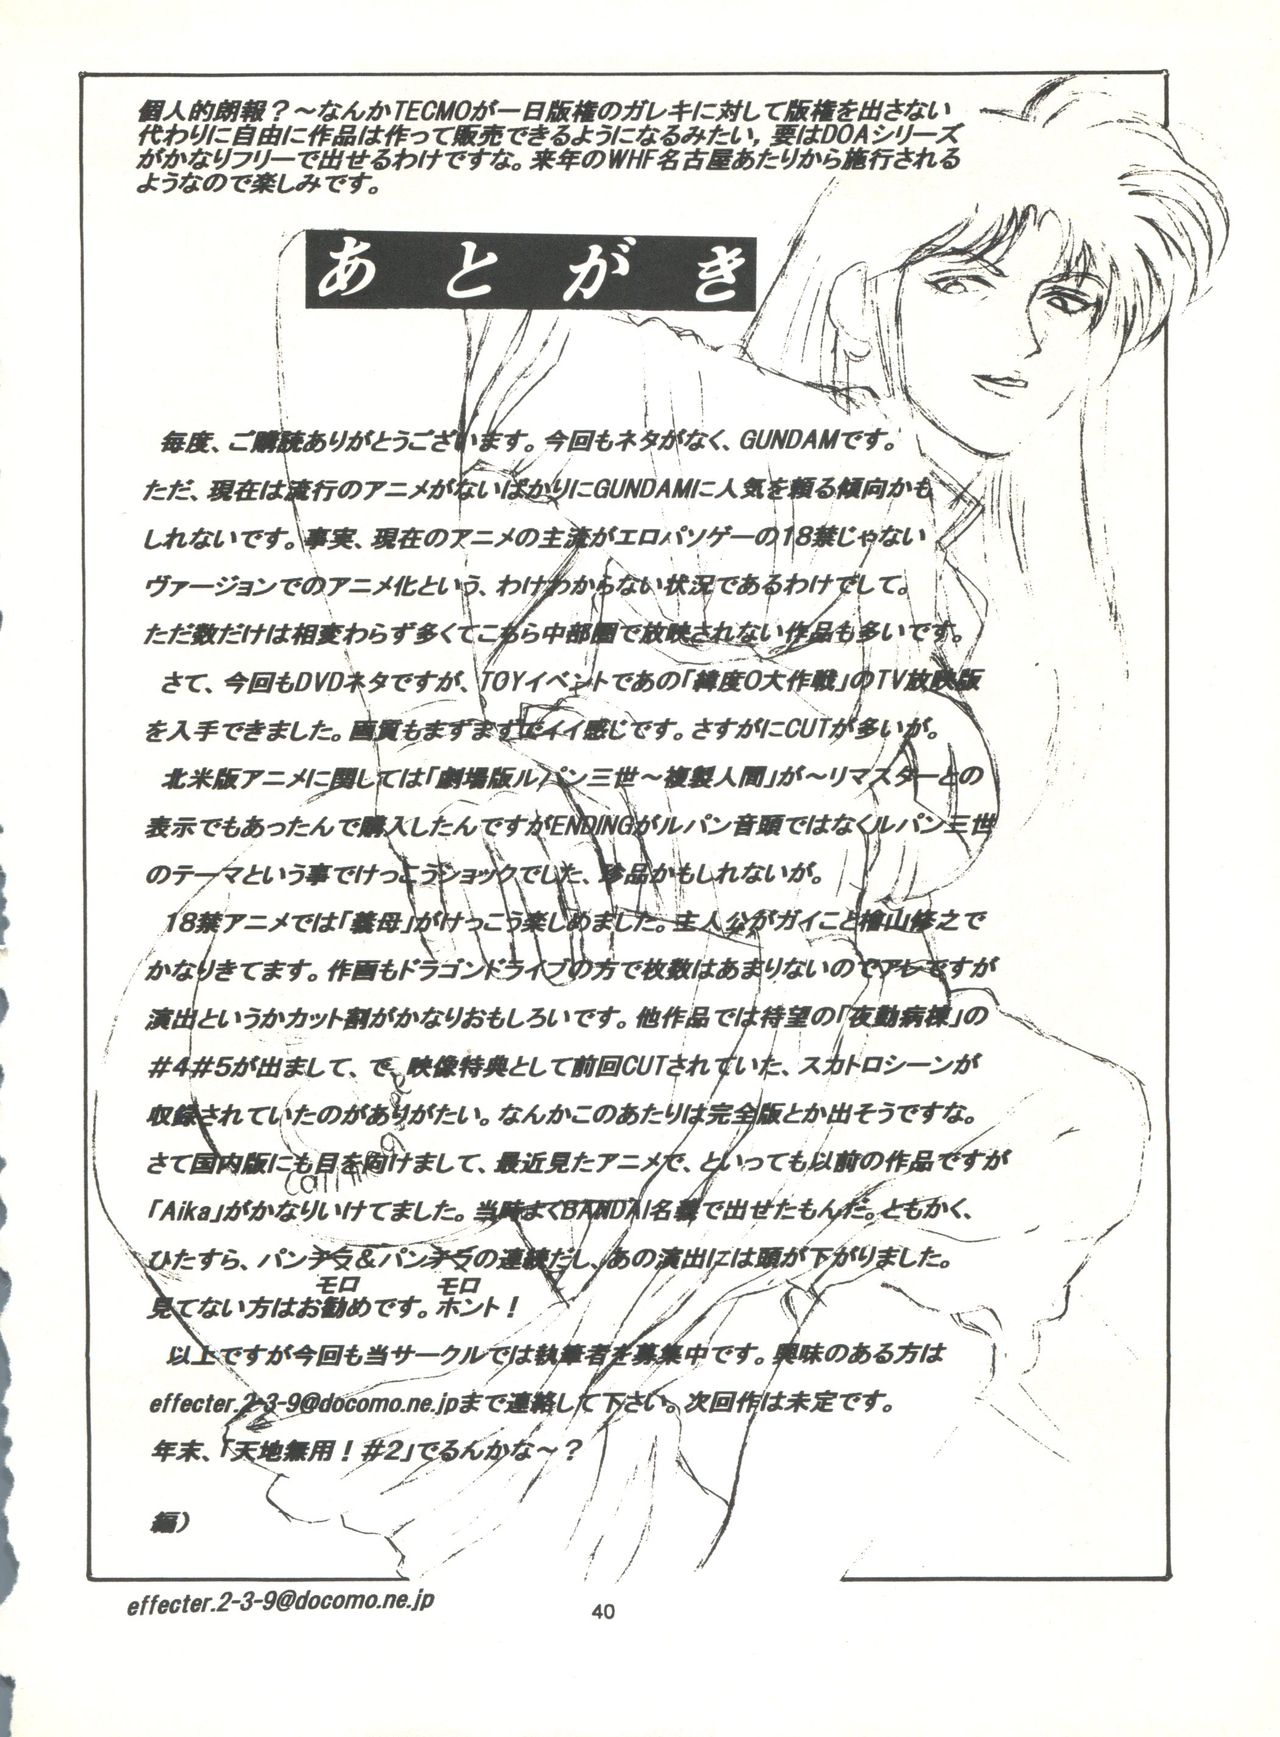 個人的朗報？～なんかTECMOが一日版権のガレキに対して版権を出さない
代わりに自由に作品は作って販売できるようになるみたい，要はDOAシリーズ
がかなりフリーで出せるわけですな。来年のWHF名古屋あたりから施行される
ようなので楽しみです。
あとがき
毎度、ご購読ありがとうございます。今回もネタがなく、GUNDAMです。
ただ、現在は流行のアニメがないばかりにGUNDAMに人気を頼る傾向かも
しれないです。事実、現在のアニメの主流がエロパソゲーの18禁じゃない
ヴァージョンでのアニメ化という、わけわからない状況であるわけでして。
ただ数だけは相変わらず多くてこちら中部圏で放映されない作品も多いです。
さて、今回もDVDネタですが、TOYイベントであの「緯度0大作戦」のTV放映版
を入手できました。画質もまずまずでイイ感じです。さすがにCUTが多いが。
北米版アニメに関しては「劇場版ルパン三世～複製人間」が～リマスターとの
表示でもあったんで購入したんですがENDINGがルパン音頭ではなくルパン三世
のテーマという事でけっこうショックでした、珍品かもしれないが。
18禁アニメでは「義母」がけっこう楽しめました。主人公がガイこと檜山修之で
かなりきてます。作画もドラゴンドライブの方で枚数はあまりないのでアレですが
演出というかカット割がかなりおもしろいです。他作品では待望の「夜勤病棟」の
＃4＃5が出まして、で、映像特典として前回CUTされていた、スカトロシーンが
収録されていたのがありがたい。なんかこのあたりは完全版とか出そうですな。
さて国内版にも目を向けまして、最近見たアニメで、といっても以前の作品ですが
「Aika」がかなりいけてました。当時よくBANDAI名義で出せたもんだ。ともかく、
ひたすら、パンチラ＆パンチラの連続だし、あの演出には頭が下がりました。
モロ　モロ
見てない方はお勧めです。ホント！
以上ですが今回も当サークルでは執筆者を募集中です。興味のある方は
effecter.2-3-9@docomo.ne.jpまで連絡して下さい。次回作は未定です。
年末、「天地無用！＃2」でるんかな～？
編）
effecter.2-3-9@docomo.ne.jp
40